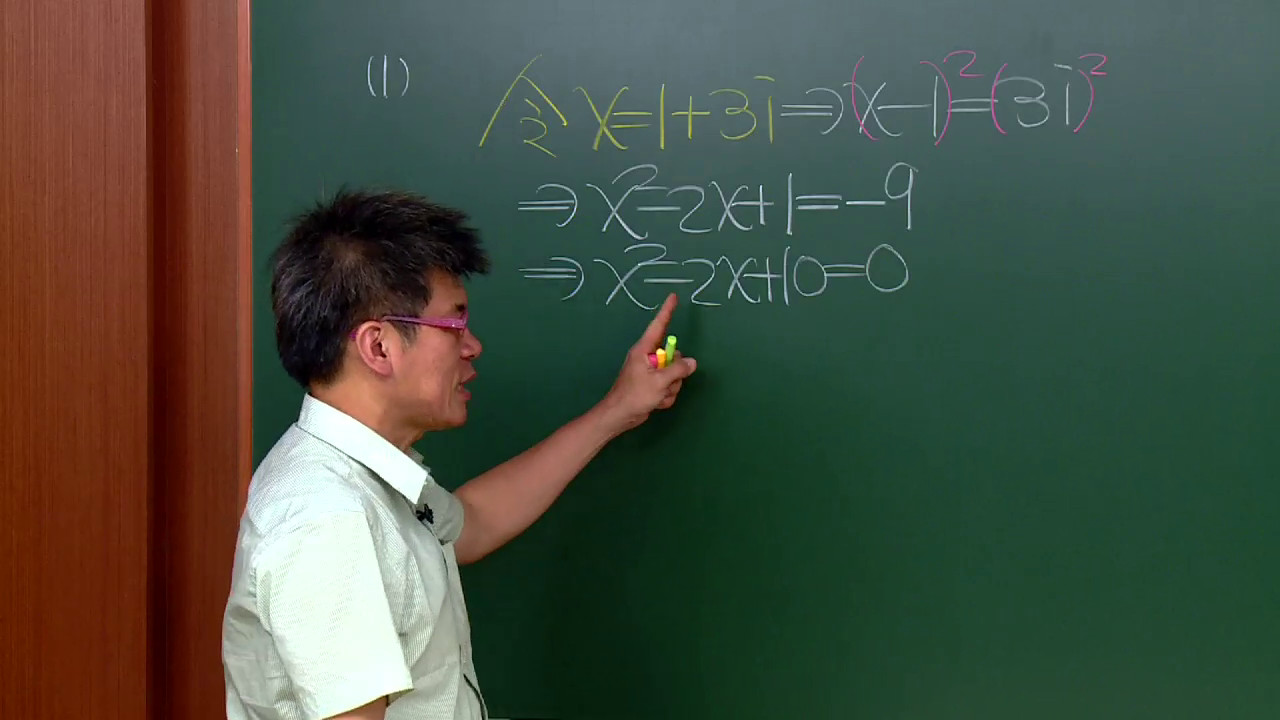 (1) 令 x=1+3i⇒(x-1)²=(3i)²
⇒x²-2x+1=-9
⇒x²-2x+10=0